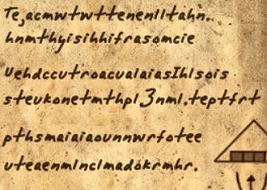 Te,acmwtwttenenlltahn.
hnmthyisihhifrasomcie
vehdccutroacvalaiasIhlsois
stevkonetmthpl3nml.teptfrt
pthsmaiaiaovnnwrfotee
vteaenmlnclmadokrmhr.